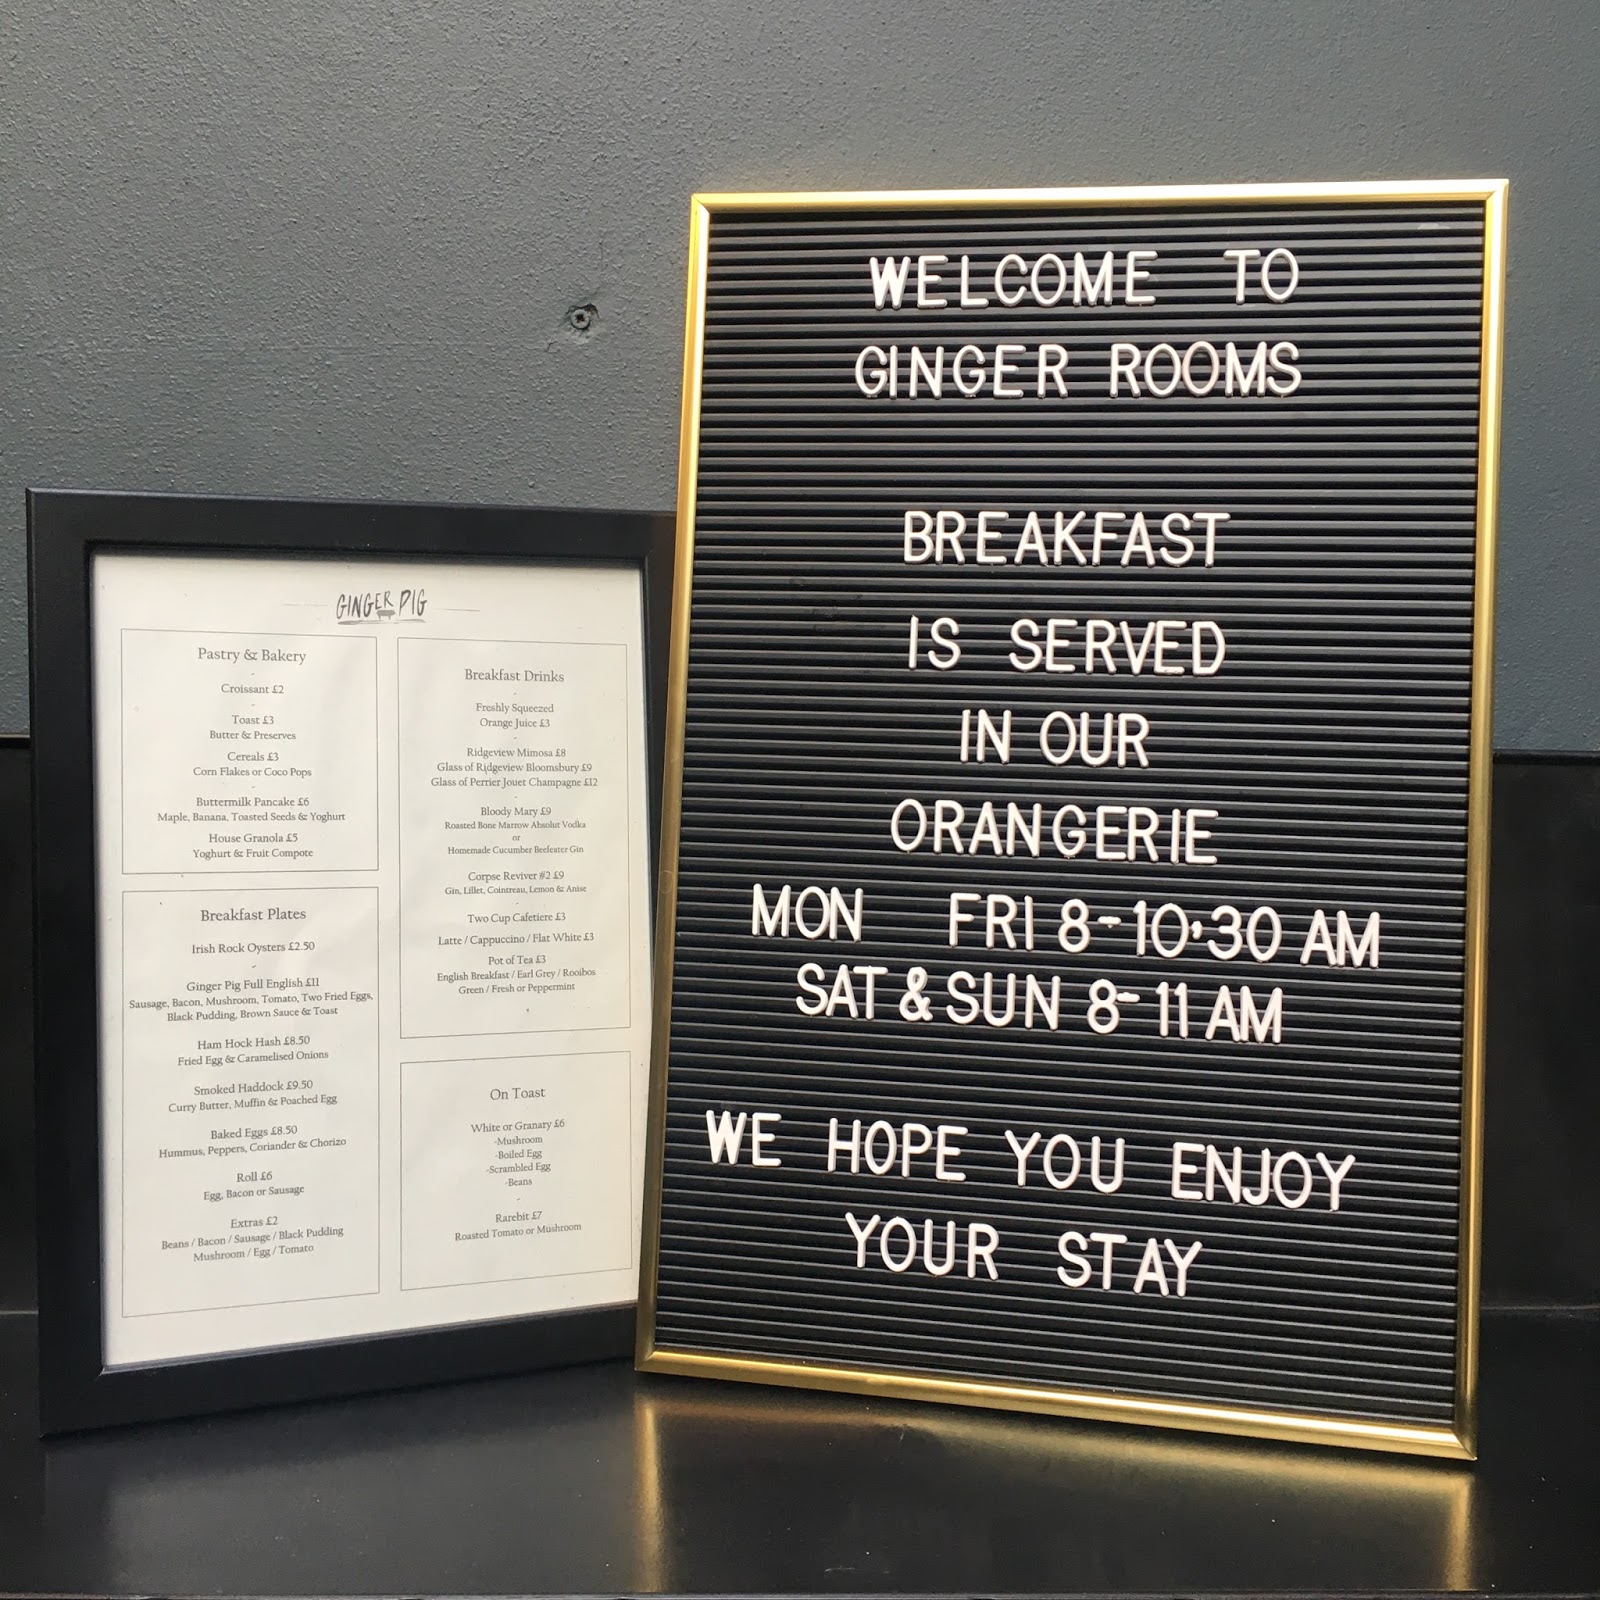 GINGER PIG
Pastry & Bakery
-
Croissant £2
-
Toast £3
Butter & Preserves
Cereals £3
Corn Flakes or Coco Pops
-
Buttermilk Pancake £6
Maple, Banana, Toasted Seeds & Yoghurt
House Granola £5
Yoghurt & Fruit Compote
Breakfast Plates
Irish Rock Oysters £2.50
-
Ginger Pig Full English £11
Sausage, Bacon, Mushroom, Tomato, Two Fried Eggs,
Black Pudding, Brown Sauce & Toast
Ham Hock Hash £8.50
Fried Egg & Caramelised Onions
Smoked Haddock £9.50
Curry Butter, Muffin & Poached Egg
Baked Eggs £8.50
Hummus, Peppers, Coriander & Chorizo
Roll £6
Egg, Bacon or Sausage
Extras £2
Beans / Bacon / Sausage / Black Pudding
Mushroom / Egg / Tomato
Breakfast Drinks
-
Freshly Squeezed
Orange Juice £3
-
Ridgeview Mimosa £8
Glass of Ridgeview Bloomsbury £9
Glass of Perrier Jouet Champagne £12
-
Bloody Mary £9
Roasted Bone Marrow Absolut Vodka
or
Homemade Cucumber Beefeater Gin
Corpse Reviver #2 £9
Gin, Lillet, Cointreau, Lemon & Anise
-
Two Cup Cafetiere £3
Latte / Cappuccino / Flat White £3
Pot of Tea £3
English Breakfast / Earl Grey / Rooibos
Green / Fresh or Peppermint
On Toast
White or Granary £6
-Mushroom
-Boiled Egg
-Scrambled Egg
-Beans
-
Rarebit £7
Roasted Tomato or Mushroom
WELCOME TO
GINGER ROOMS
BREAKFAST
IS SERVED
IN OUR
ORANGERIE
MON FRI 8-10:30 AM
SAT & SUN 8-11 AM
WE HOPE YOU ENJOY
YOUR STAY